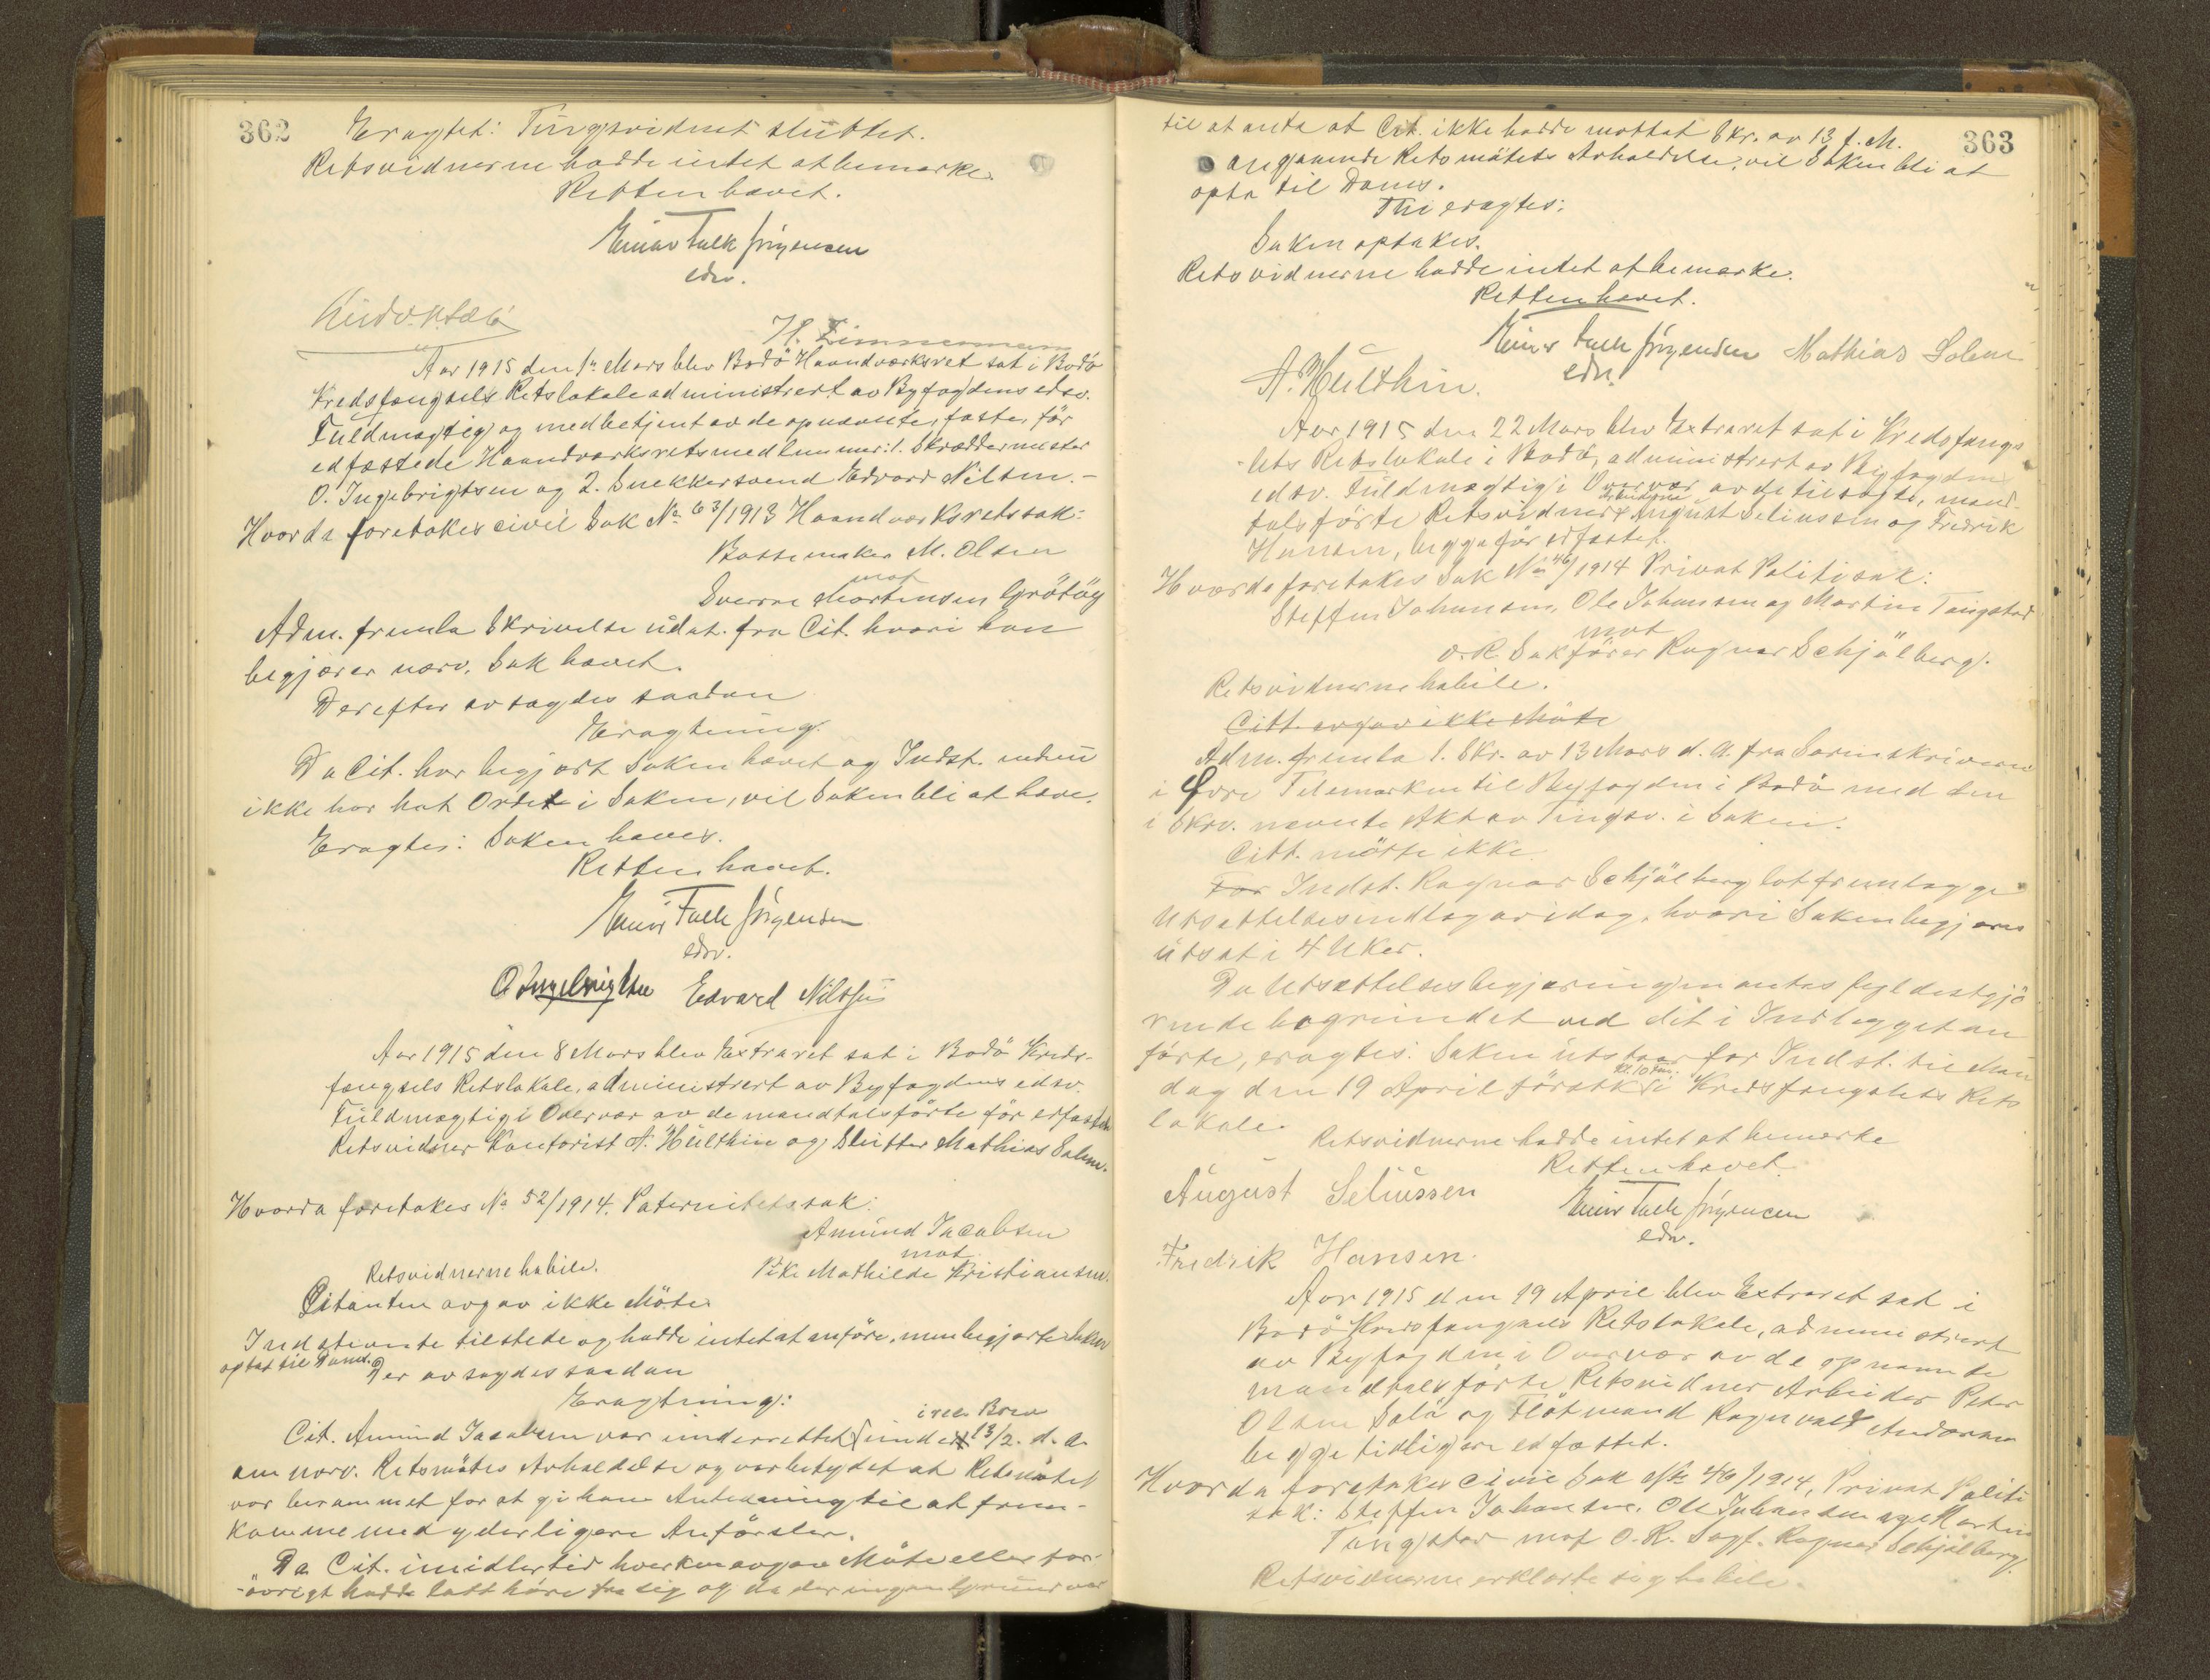 362
Eragtet: Tingsvidnet sluttet.
Retsvidnerne hadde intet at bemærke.
Retten hævet.
Einar Falk Jörgensen
edsv.
H. Zimmermann
Aar 1915 den 1ste Mars blev Bodö Haandværksret sat i Bodö
Kredsfængsels Retslokale administrert av Byfogdens edsv.
Fuldmægtig og medbetjent av de opnævnte, faste, för
edfæstede Haandværksretsmedlemmer: 1. Skræddermester
O. Ingebrigtsen og 2. Snekkersvend Edvard Nilsen.-
Hvorda foretokes civil Sak No 63/1913 Haandværksretssak:
Bøssemaker M. Olsen
mot
Sverre Mortensen Grötöy
Adm. fremla Skrivelse udat. fra Cit. hvori han
begjærer nærv. Sak hævet.
Derefter avsagdes saadan
Eragtning.
Da Cit. har begjært Saken hævet og Indst. endnu
ikke har hat Ordet i Saken, vil Saken bli at hæve.
Eragtes: Saken hæves.
Retten hævet.
Einar Falk Jörgensen
edsv.
O Ingebrigtsen Edvard Nilssen
Aar 1915 den 8 Mars blev Extraret sat i Bodö Kreds-
fængsels Retslokale, administrert av Byfogdens edsv.
Fuldmægtig i Overvær av de mandtalsförte för edfæstede
Retsvidner Kontorist A. Hulthin og Slutter Mathias Solem.
Hvorda foretokes No 52/1914. Paternitetssak:
Amund Jacobsen
mot
Retsvidnerne habile. Pike Mathilde Kristiansen.
Citanten avgav ikke Möte.
Indstevnte tilstede og hadde intet at anföre, men begjærte Saken
optat til Doms.
Der avsagdes saadan
Eragtning:
i rec. Brev
Cit. Amund Jacobsen var underrettet under 13/2. d. A.
om nærv. Retsmötes Avholdelse og var betydet at Retsmötet
var berammet for at gi ham Anledning til at frem-
komme med yderligere Anförsler.
Da Cit. imidlertid hverken avgav Möte eller for-
övrigt hadde latt höre fra sig og da der ingen Grund var
363
til at anta at Cit. ikke hadde mottat Skr. av 13 f. M.
angaaende Retsmötets Avholdelse, vil Saken bli at
opta til Doms.
Thi eragtes:
Saken optakes.
Retsvidnerne hadde intet at bemærke.
Retten hævet.
Einar Falk Jörgensen Mathias Solem
edsv.
A. Hulthin.
Aar 1915 den 22 Mars blev Extraret sat i Kredsfængs-
lets Retslokale i Bodö, administrert av Byfogdens
edsv. Fuldmægtig i Overvær av de tilsagte, mand-
Arbeiderne
talsförte Retsvidner August Seliussen og Fredrik
Hansen, begge för edfæstet.
Hvorda foretokes Sak No 46/1914 Privat Politisak:
Steffen Johansen, Ole Johansen og Martin Tangstad
mot
O.R. Sakförer Ragnar Schjölberg.
Retsvidnerne habile.
Citt. avgav ikke Möte
Adm. fremla 1. Skr. av 13 Mars d. A. fra Sorenskriveren
i Övre Telemarken til Byfogden i Bodö med den
i Skr. nævnte Akt av Tingsv. i Saken.
Citt. mötte ikke.
For Indst. Ragnar Schjölberg lot fremlægge
Utsættelsesindlæg av idag, hvori Saken begjæres
utsat i 4 Uker.
Da Utsættelsesbegjæringen antas fyldestgjö
rende begrundet ved det i Indlegget an
förte, eragtes: Saken utstaar for Indst. til Man
kl. 10 Fm.
dag den 19 April förstk. i Kredsfængslets Rets
lokale.
Retsvidnerne hadde intet at bemærke
Retten hævet.
August Seliussen
Einar Falk Jörgensen
edsv.
Fredrik Hansen.
Aar 1915 den 19 April blev Extraret sat i
Bodö Kredsfængsels Retslokale, administrert
av Byfogden i Overvær av de opnævnte
mandtalsförte Retsvidner Arbeider Peter
Olsen Salö og Flötmand Ragnvald Andersen
begge tidligere edfæstet.
Hvorda foretokes civil Sak No 46/1914, Privat Politi
sak: Steffen Johansen, Ole Johansen og Martin
Tangstad mot O.R. Sagf. Ragnar Schjölberg.
Retsvidnerne erklærte sig habile.